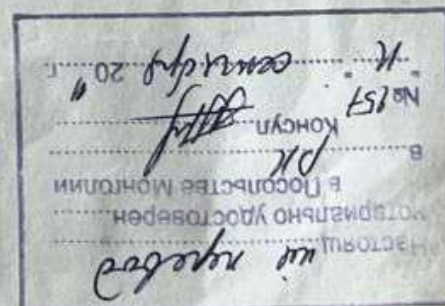 Настоящ ий перевод
нотариально удостоверен
в Посольстве Монголии
в РК
Консул
№ 151
" 11 " сентября 20 11 г.